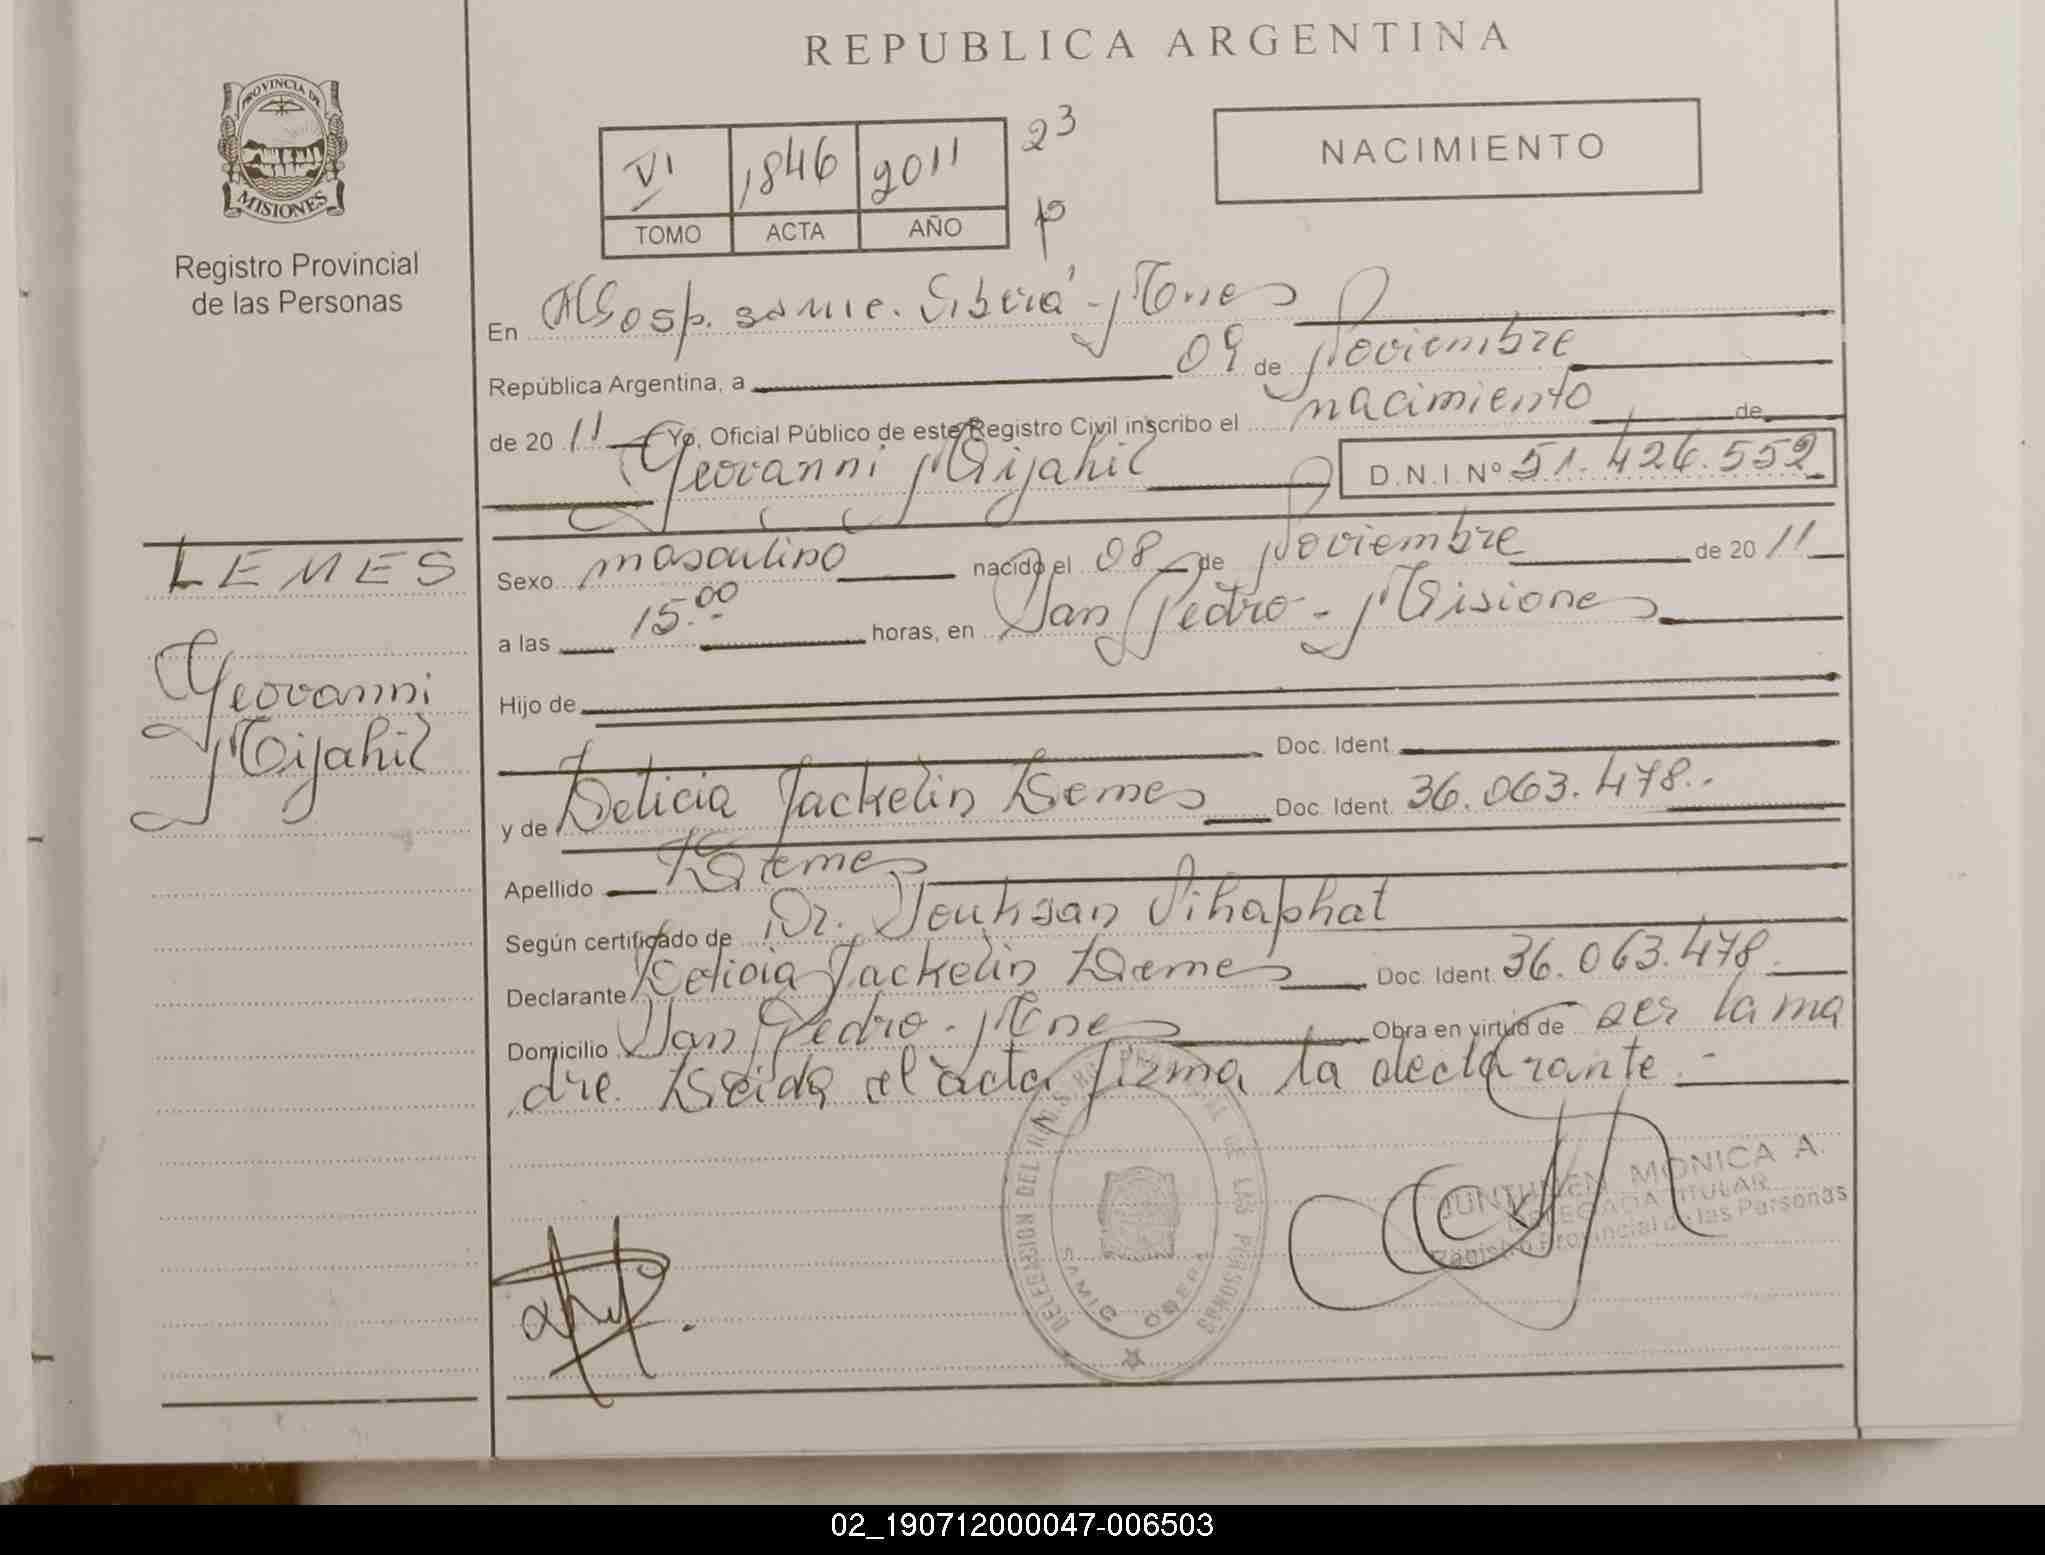 REPUBLICA ARGENTINA
PROVINCIA DE
MISIONES
Registro Provincial
de las Personas
VI 1846 2011 23
TOMO ACTA AÑO
NACIMIENTO
En Hosp. samic. - Mnes
República Argentina, a 09 de Noviembre
de 20 11 Yo, Oficial Público de este Registro Civil inscribo el nacimiento de
Geovanni Mijahil D.N.I. Nº 51.426.552
LEMES
Geovanni
Mijahil
Sexo masculino nacido el 08 de Noviembre de 20 11
a las 15.00 horas, en San Pedro - Misiones
Hijo de
Doc. Ident.
y de Leticia Jackelin Lemes Doc. Ident. 36.063.478.-
Apellido Lemes
Según certificado de Dr.
Declarante Leticia Jackelin Lemes Doc. Ident. 36.063.478.
Domicilio San Pedro - Mnes Obra en virtud de ser la ma
dre. Leida el acta firma la declarante.-
DELEGACION DEL DE LAS PERSONAS
SAMIC OBERA
MONICA A.
DELEGADA TITULAR
Registro Provincial de las Personas
02_190712000047-006503